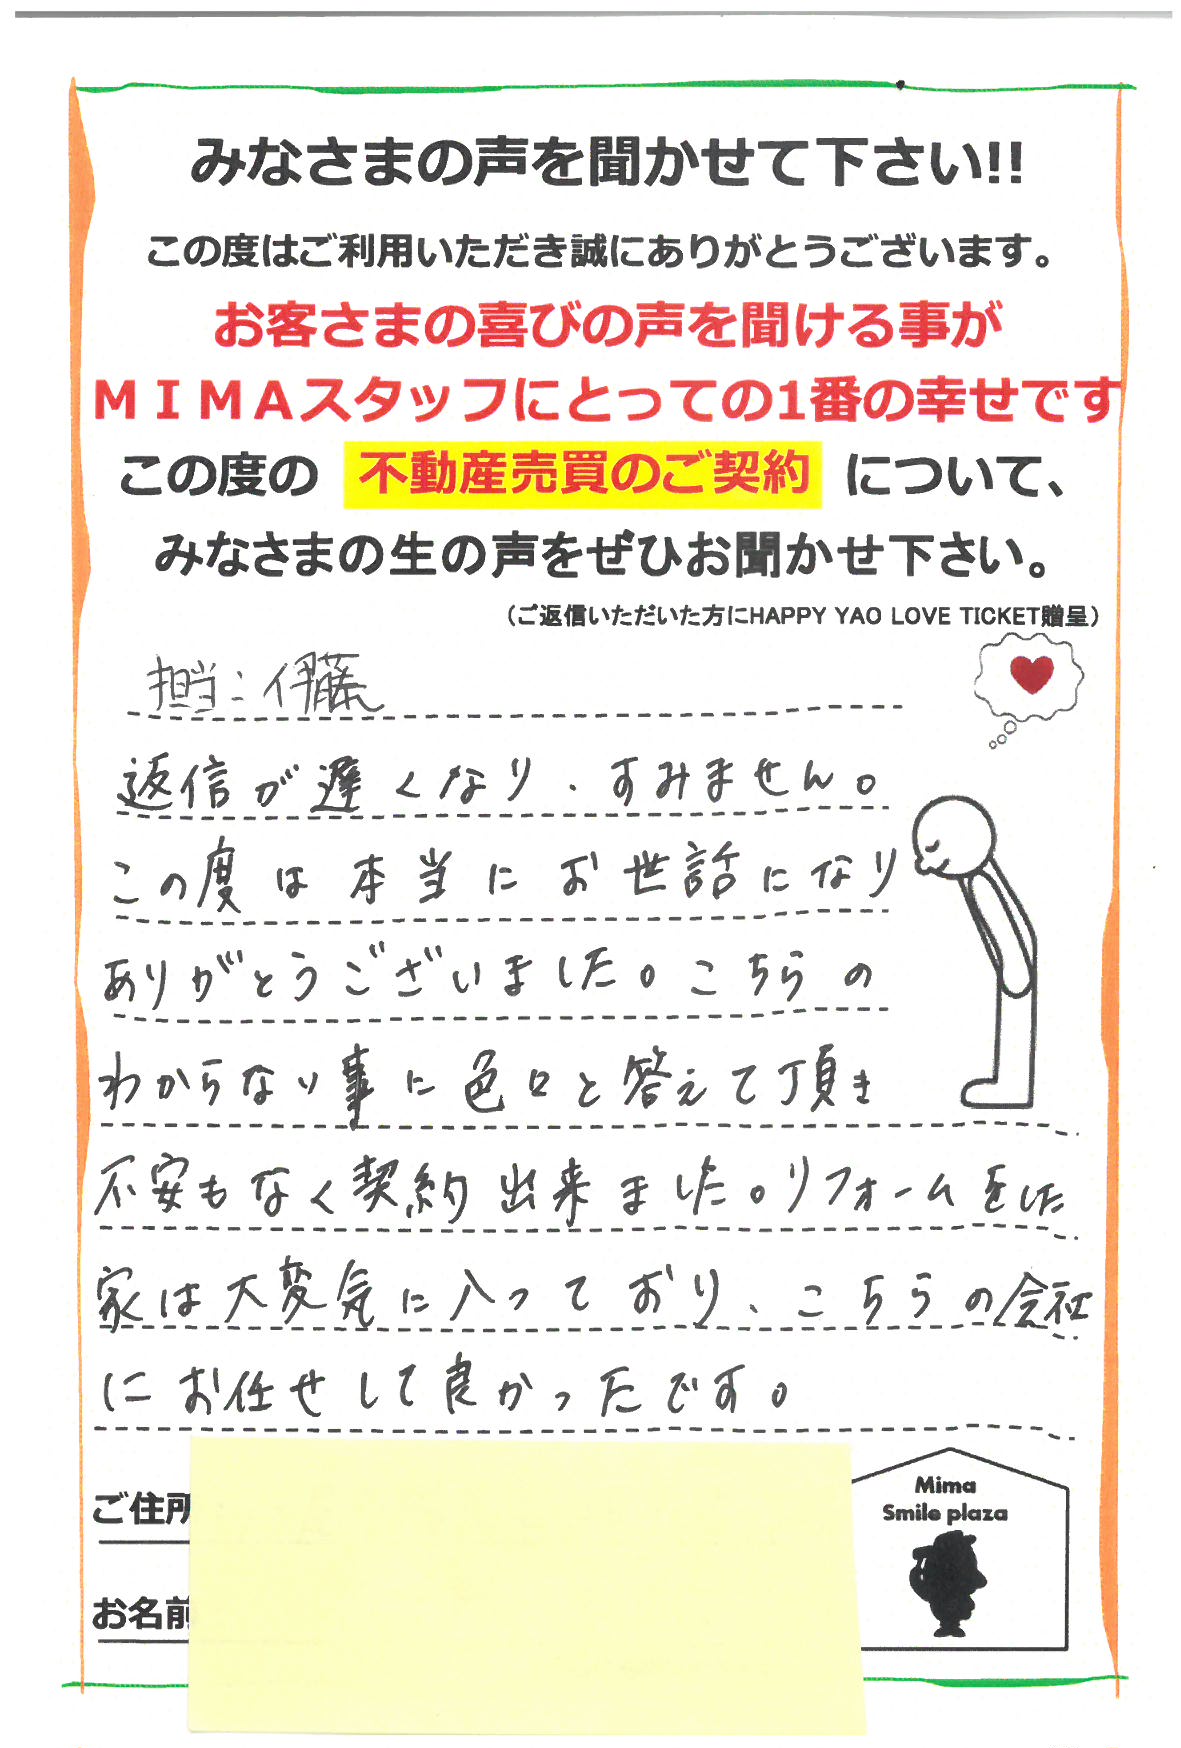 みなさまの声を聞かせて下さい!!
この度はご利用いただき誠にありがとうございます。
お客さまの喜びの声を聞ける事が
ＭＩＭＡスタッフにとっての1番の幸せです
この度の 不動産売買のご契約 について、
みなさまの生の声をぜひお聞かせ下さい。
（ご返信いただいた方にHAPPY YAO LOVE TICKET贈呈）
担当：伊藤
返信が遅くなり、すみません。
この度は本当にお世話になり
ありがとうございました。こちらの
わからない事に色々と答えて頂き
不安もなく契約出来ました。リフォームをした
家は大変気に入っており、こちらの会社
にお任せして良かったです。
ご住所
お名前
Mima
Smile plaza